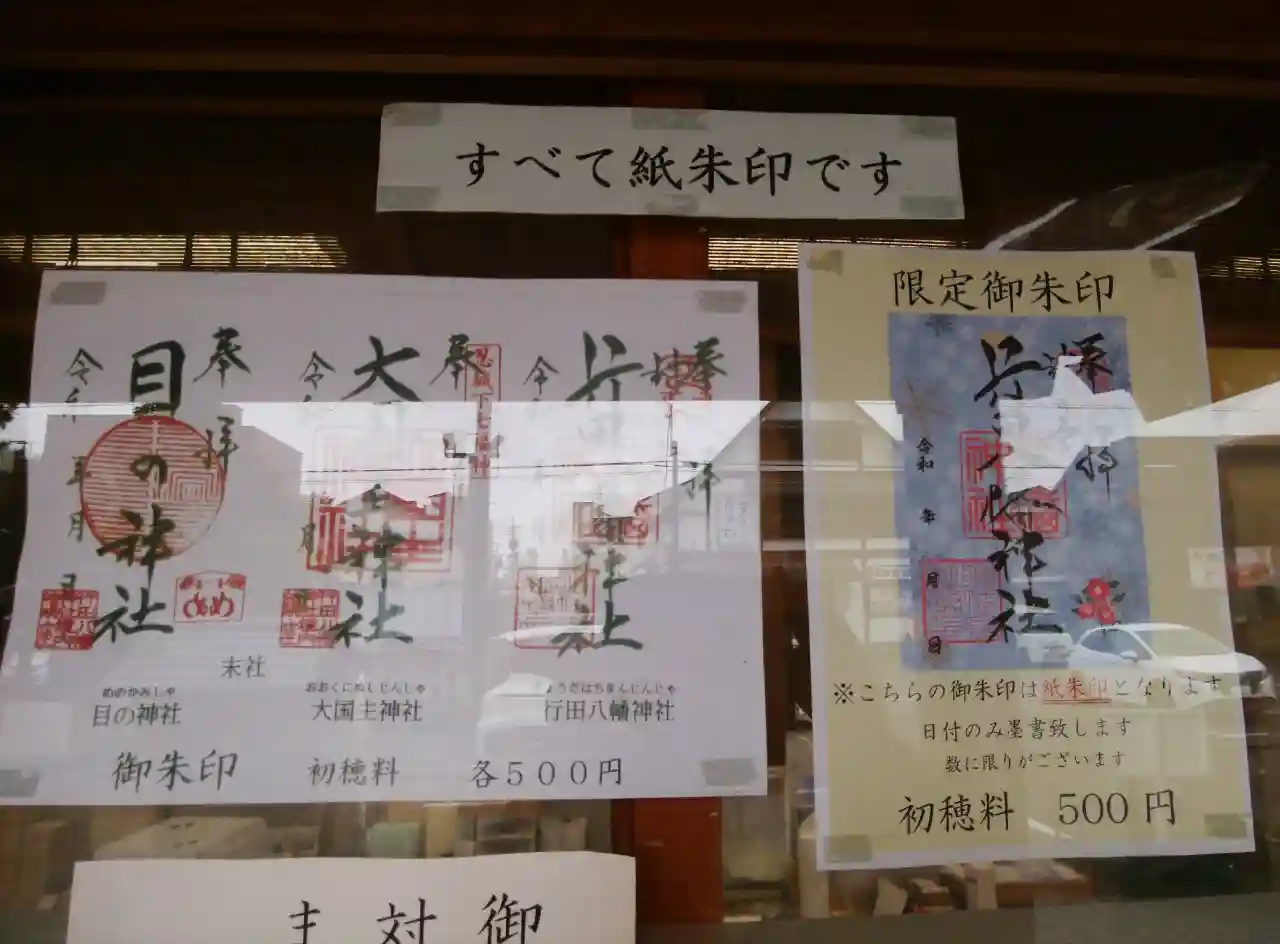 すべて紙朱印です
奉拝
目の神社
令和 年 月 日
奉
大
主神社
令和
月
忍城下七福神
奉拝
行田
神社
令和
末社
めのかみしゃ
目の神社
おおくにぬしじんじゃ
大国主神社
行田八幡神社
御朱印 初穂料 各500円
限定御朱印
奉拝
行田八幡神社
令和 年 月 日
※こちらの御朱印は紙朱印となります
日付のみ墨書致します
数に限りがございます
初穂料 500円
対 御